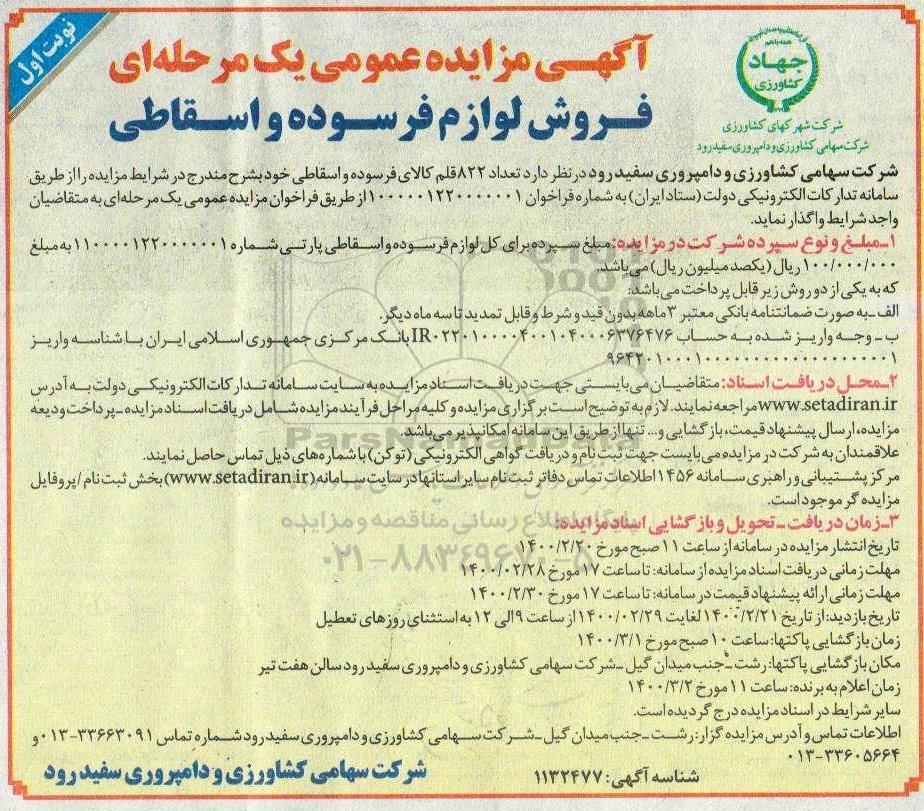 نوبت اول
جهاد
کشاورزی
شرکت شهرکهای کشاورزی
شرکت سهامی کشاورزی و دامپروری سفیدرود
آگهی مزایده عمومی یک مرحله‌ای
فروش لوازم فرسوده و اسقاطی
شرکت سهامی کشاورزی و دامپروری سفید رود در نظر دارد تعداد ۸۲۲ قلم کالای فرسوده و اسقاطی خود بشرح مندرج در شرایط مزایده را از طریق
سامانه تدارکات الکترونیکی دولت (ستاد ایران) به شماره فراخوان ۱۰۰۰۰۰۱۲۲۰۰۰۰۰۰۱ از طریق فراخوان مزایده عمومی یک مرحله‌ای به متقاضیان
واجد شرایط واگذار نماید.
۱ـ مبلغ و نوع سپرده شرکت در مزایده: مبلغ سپرده برای کل لوازم فرسوده و اسقاطی پارتی شماره ۱۱۰۰۰۰۱۲۲۰۰۰۰۰۰۱ به مبلغ
۱۰۰/۰۰۰/۰۰۰ ریال (یکصد میلیون ریال) می‌باشد.
که به یکی از دو روش زیر قابل پرداخت می‌باشد:
الف ـ به صورت ضمانتنامه بانکی معتبر ۳ ماهه بدون قید و شرط و قابل تمدید تا سه ماه دیگر.
ب ـ وجه واریز شده به حساب IR۰۲۲۰۱۰۰۰۰۴۰۰۱۰۴۰۰۰۶۳۷۶۴۷۶ بانک مرکزی جمهوری اسلامی ایران با شناسه واریز
۲ـ محل دریافت اسناد: متقاضیان می‌بایستی جهت دریافت اسناد مزایده به سایت سامانه تدارکات الکترونیکی دولت به آدرس
www.setadiran.ir مراجعه نمایند. لازم به توضیح است برگزاری مزایده و کلیه مراحل فرآیند مزایده شامل دریافت اسناد مزایده ـ پرداخت ودیعه
مزایده، ارسال پیشنهاد قیمت، بازگشایی و... تنها از طریق این سامانه امکانپذیر می‌باشد.
علاقمندان به شرکت در مزایده می‌بایست جهت ثبت نام و دریافت گواهی الکترونیکی (توکن) با شماره‌های ذیل تماس حاصل نمایند.
مرکز پشتیبانی و راهبری سامانه ۱۴۵۶ اطلاعات تماس دفاتر ثبت نام سایر استانها در سایت سامانه (www.setadiran.ir) بخش ثبت نام / پروفایل
مزایده گر موجود است.
۳ـ زمان دریافت ـ تحویل و بازگشایی اسناد مزایده:
تاریخ انتشار مزایده در سامانه از ساعت ۱۱ صبح مورخ ۱۴۰۰/۲/۲۰
مهلت زمانی دریافت اسناد مزایده از سامانه: تا ساعت ۱۷ مورخ ۱۴۰۰/۰۲/۲۸
مهلت زمانی ارائه پیشنهاد قیمت در سامانه: تا ساعت ۱۷ مورخ ۱۴۰۰/۲/۳۰
تاریخ بازدید: از تاریخ ۱۴۰۰/۲/۲۱ لغایت ۱۴۰۰/۰۲/۲۹ از ساعت ۹ الی ۱۲ به استثنای روزهای تعطیل
زمان بازگشایی پاکتها: ساعت ۱۰ صبح مورخ ۱۴۰۰/۳/۱
مکان بازگشایی پاکتها: رشت ـ جنب میدان گیل ـ شرکت سهامی کشاورزی و دامپروری سفید رود سالن هفت تیر
زمان اعلام به برنده: ساعت ۱۱ مورخ ۱۴۰۰/۳/۲
سایر شرایط در اسناد مزایده درج گردیده است.
اطلاعات تماس و آدرس مزایده گزار: رشت ـ جنب میدان گیل ـ شرکت سهامی کشاورزی و دامپروری سفید رود شماره تماس ۰۱۳-۳۳۶۶۳۰۹۱ و
۰۱۳-۳۳۶۰۵۶۶۴
شناسه آگهی: ۱۱۳۲۴۷۷
شرکت سهامی کشاورزی و دامپروری سفید رود
ParsNamadData
پایگاه اطلاع رسانی مناقصه و مزایده
۰۲۱-۸۸۳۴۹۶۷۰-۵